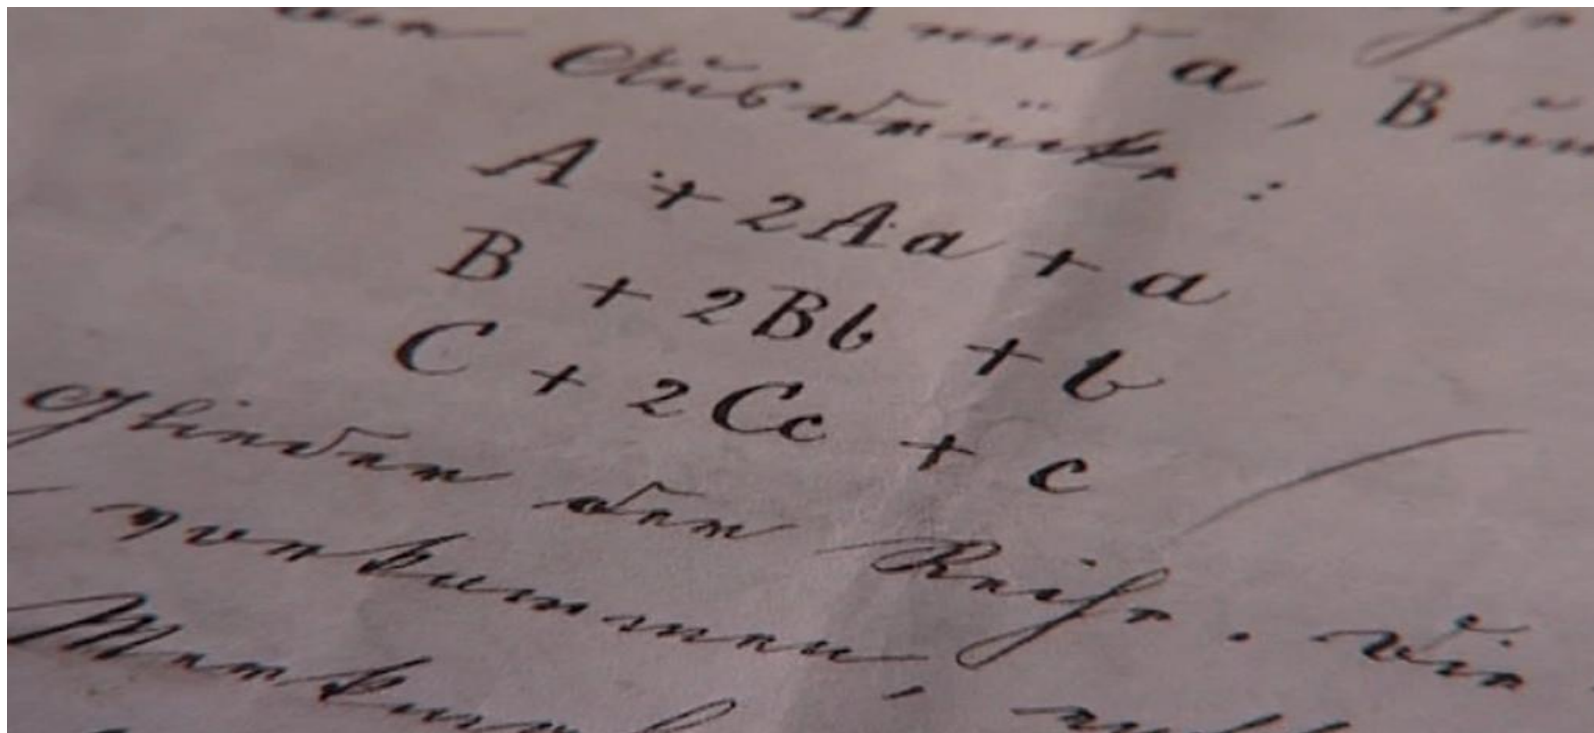 A und a, B un
Ausdrücke:
A + 2Aa + a
B + 2Bb + b
C + 2Cc + c
Glieder der Reihe. Die
vorkommen,